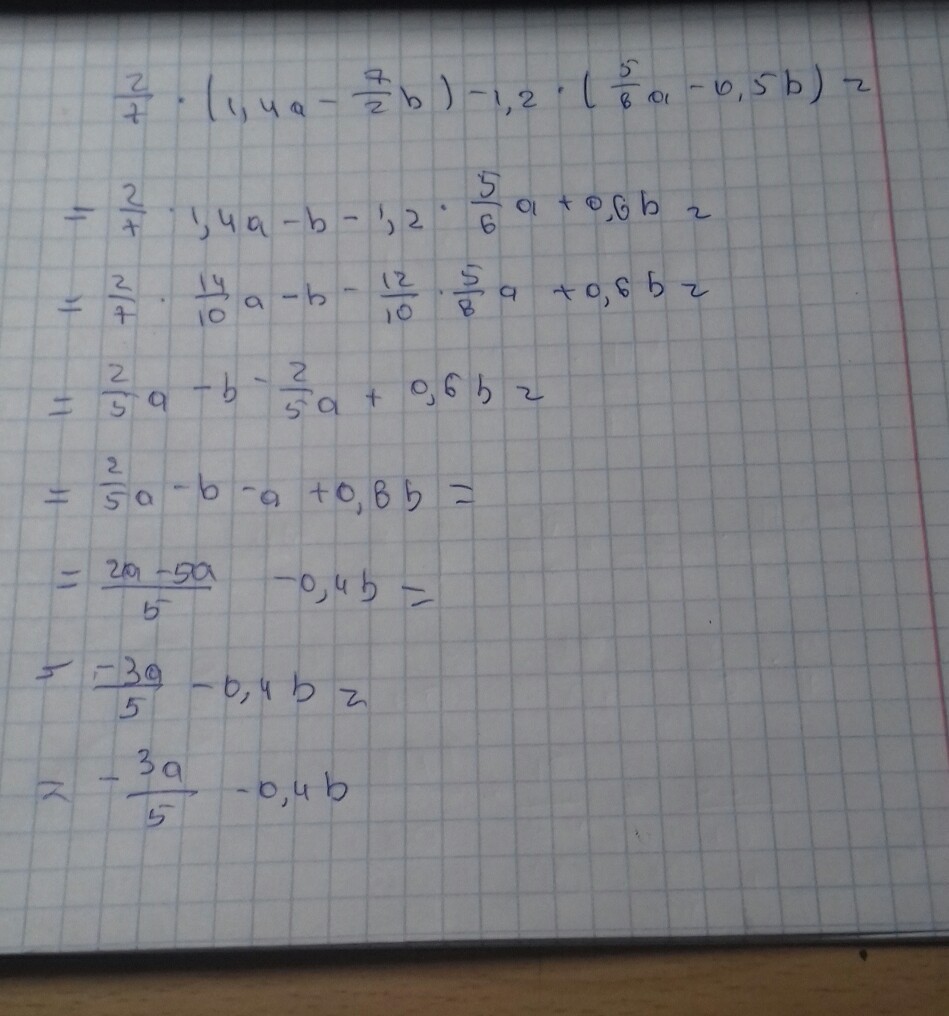 2/7 · (1,4a - 7/2 b) - 1,2 · (5/6 a - 0,5b) =
= 2/7 · 1,4a - b - 1,2 · 5/6 a + 0,6b =
= 2/7 · 14/10 a - b - 12/10 · 5/6 a + 0,6b =
= 2/5 a - b - 2/5 a + 0,6b =
= 2/5 a - b - a + 0,6b =
= (2a - 5a)/5 - 0,4b =
= -3a/5 - 0,4b =
= - 3a/5 - 0,4b